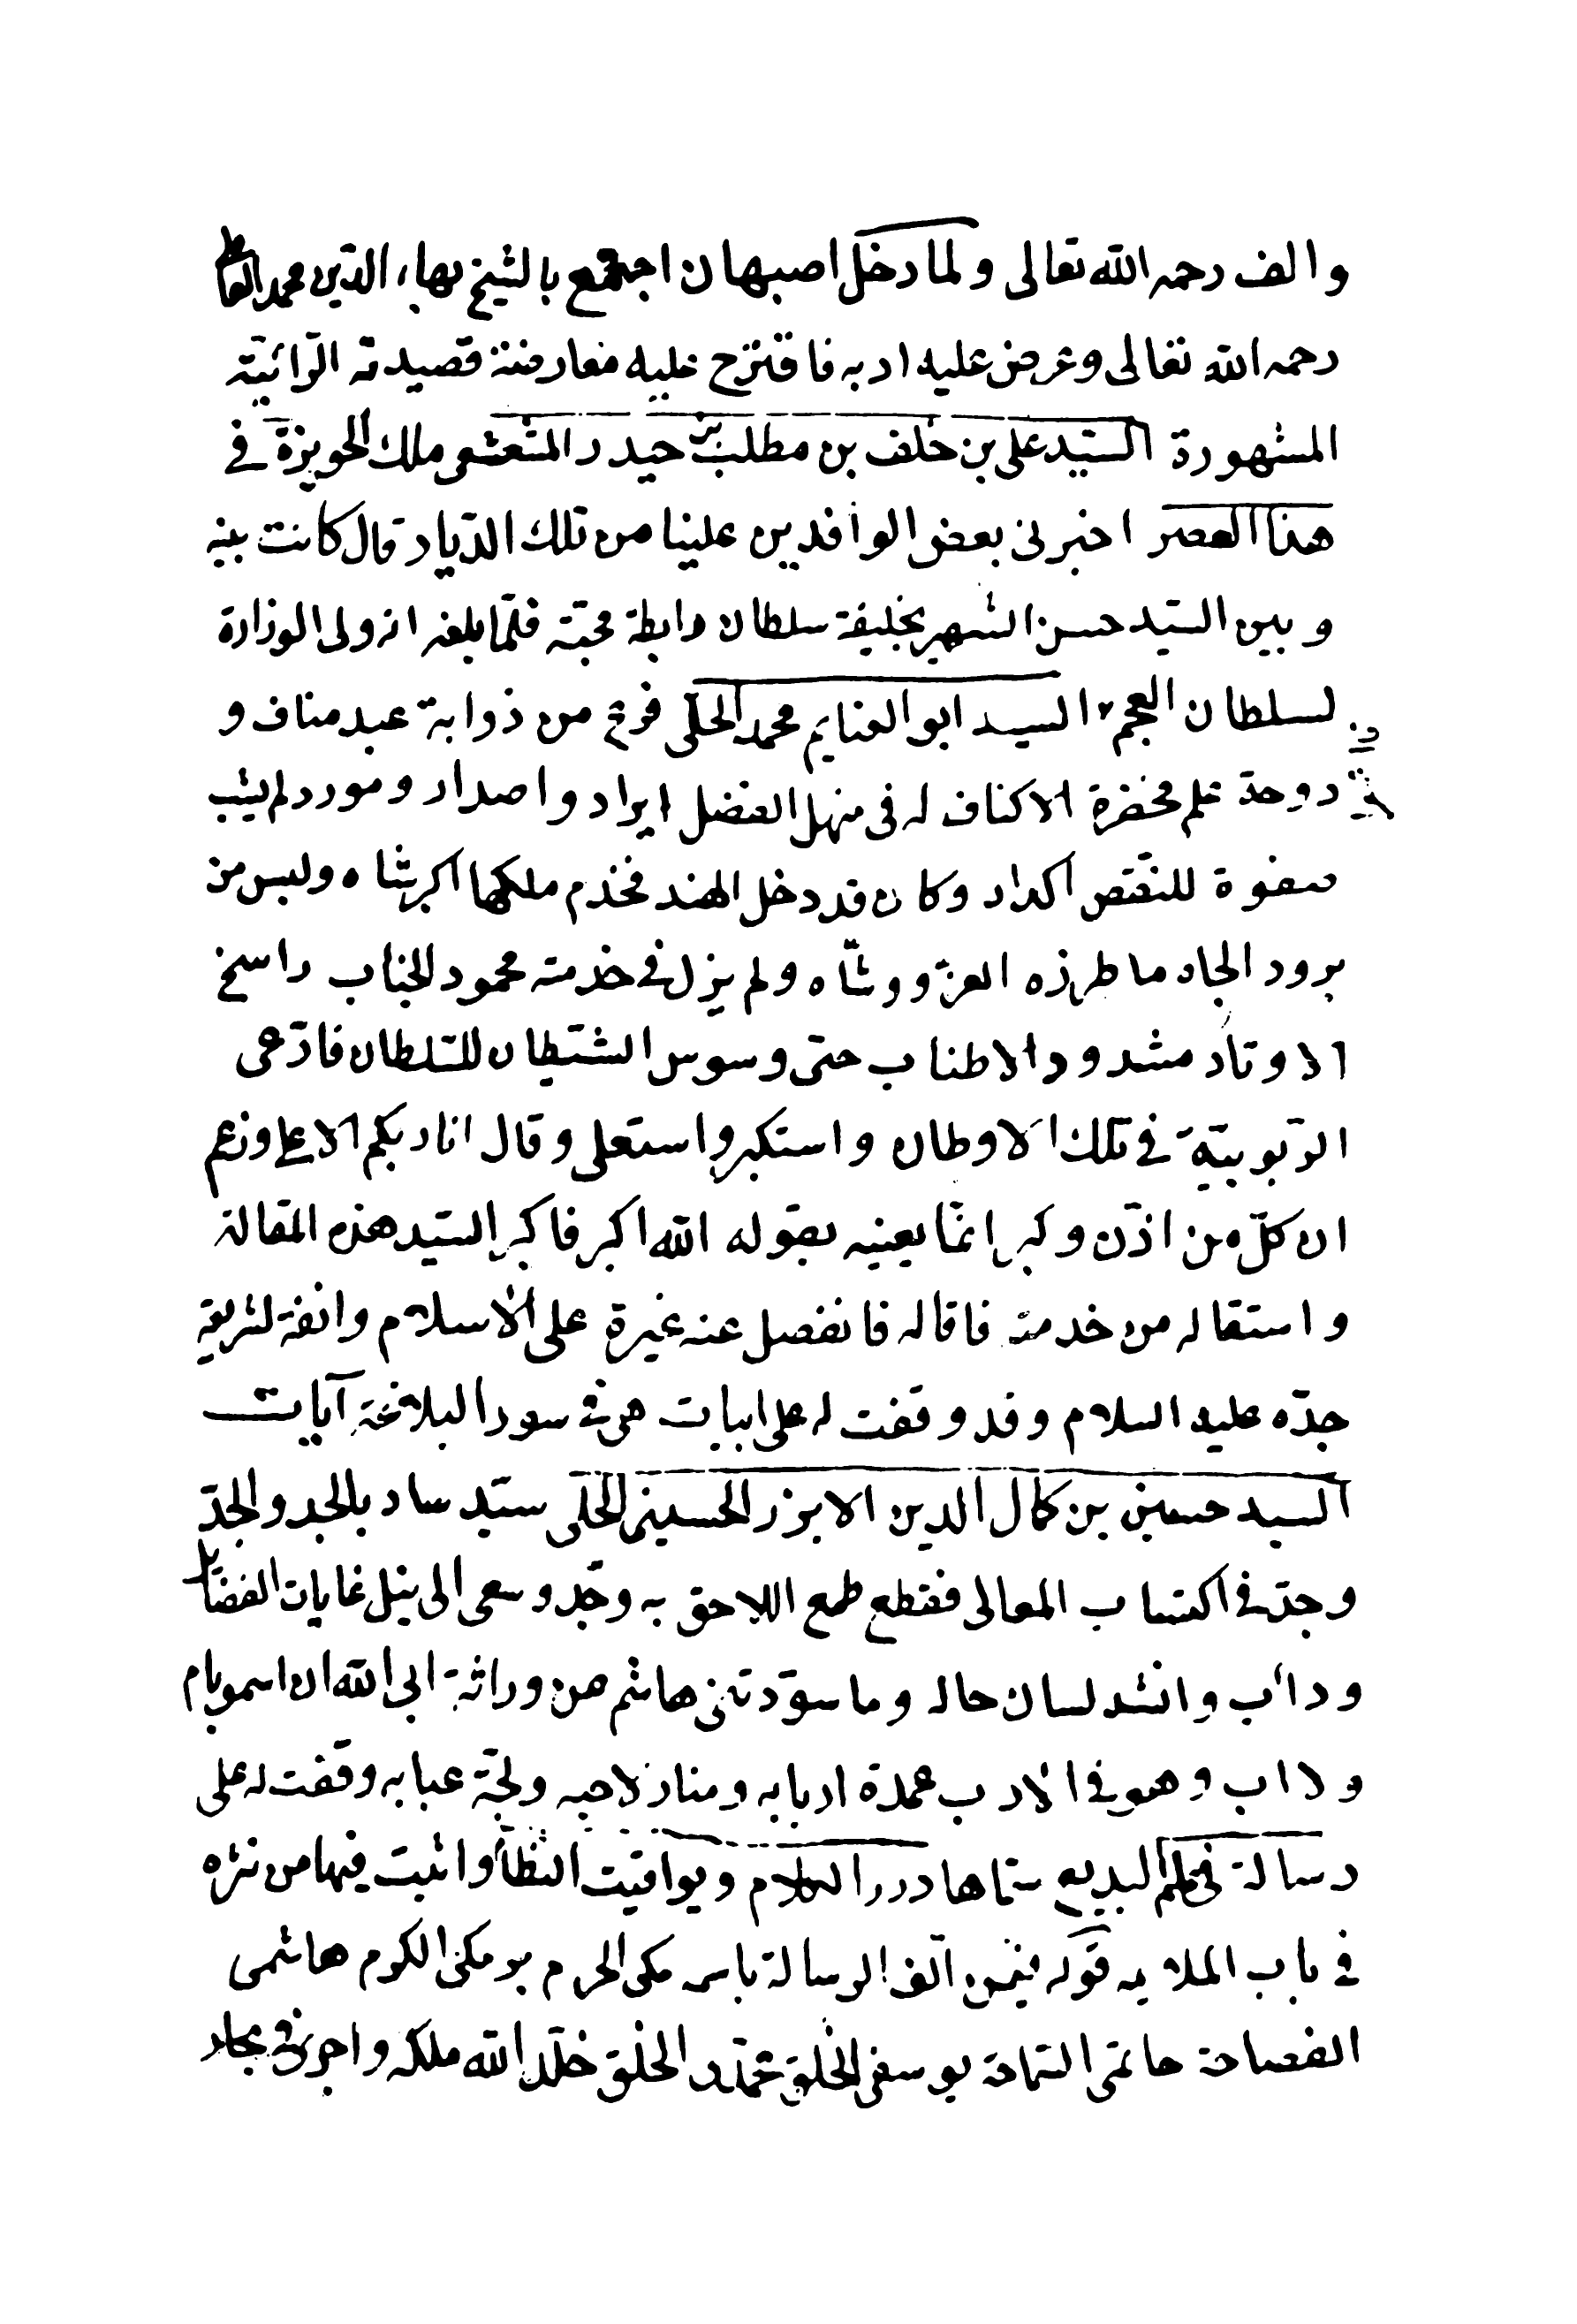 والف رحمه الله تعالى ولما دخل اصبهان اجتمع بالشيخ بهاء الدين محمد العاملى
رحمه الله تعالى وعرض عليه ادبه فاقترح عليه معارضة قصيدته الرّائيّة
المشهورة السّيد على بن خلف بن مطلب بن حيدر المشعشعى ملك الحويزة فى
هذا العصر اخبرنى بعض الوافدين علينا من تلك الدّيار قال كانت بينه
وبين السّيد حسن الشهير بخليفة سلطان رابطة محبّة فلمّا بلغه انه ولى الوزارة
لسلطان العجم السيد ابو الغنايم محمد الحلّى فرع من ذوابة عبد مناف و
دوحة علم مخضرة الاكناف له فى منهل الفضل ايراد واصدار ومورد لم يشب
صفوة للنقص اكدار وكان قد دخل الهند فخدم ملكها اكبر شاه ولبس من
برود الجاه ما طرزه العزّ ووشّاه ولم يزل فى خدمته محمود الجناب راسخ
الاوتاد مشدود الاطناب حتى وسوس الشّيطان للسّلطان فادّعى
الرّبوبيّة فى تلك الاوطان واستكبر واستعلى وقال انا ربكم الاعلى وزعم
ان كلّ من اذّن وكبر انمّا يعنيه بقوله الله اكبر فاكبر السّيد هذه المقالة
واستقاله من خدمته فاقاله فانفصل عنه غيرة على الاسلام وانفة لشريعة
جدّه عليه السلام وقد وقفت له على ابيات هى فى سور البلاغة آيات
السيد حسين بن كمال الدين الابزر الحسينى الحلّى سيّد ساد بالجد والجدّ
وجدّ فى اكتساب المعالى فقطع طمع اللاحق به وجدّ وسعى الى نيل غايات الفضايل
ودأب وانشد لسان حاله وما سوّدتنى هاشم من وراثة ابى الله ان اسمو بام
ولا اب وهو فى الادب عمدة اربابه ومنار لاحبه ولجّة عبابه وقفت له على
رسالة فى علم البديع سمّاها درر الكلام ويواقيت النظام واثبت فيها من نثره
فى باب الملايمه قوله فيمن الّف الرسالة باسمه مكى الحرم برمكى الكرم هاشمى
الفصاحة حاتمى السّماحة يوسفى الخلق محمّدى الخلق خلّد الله ملكه واجرى فى بحار